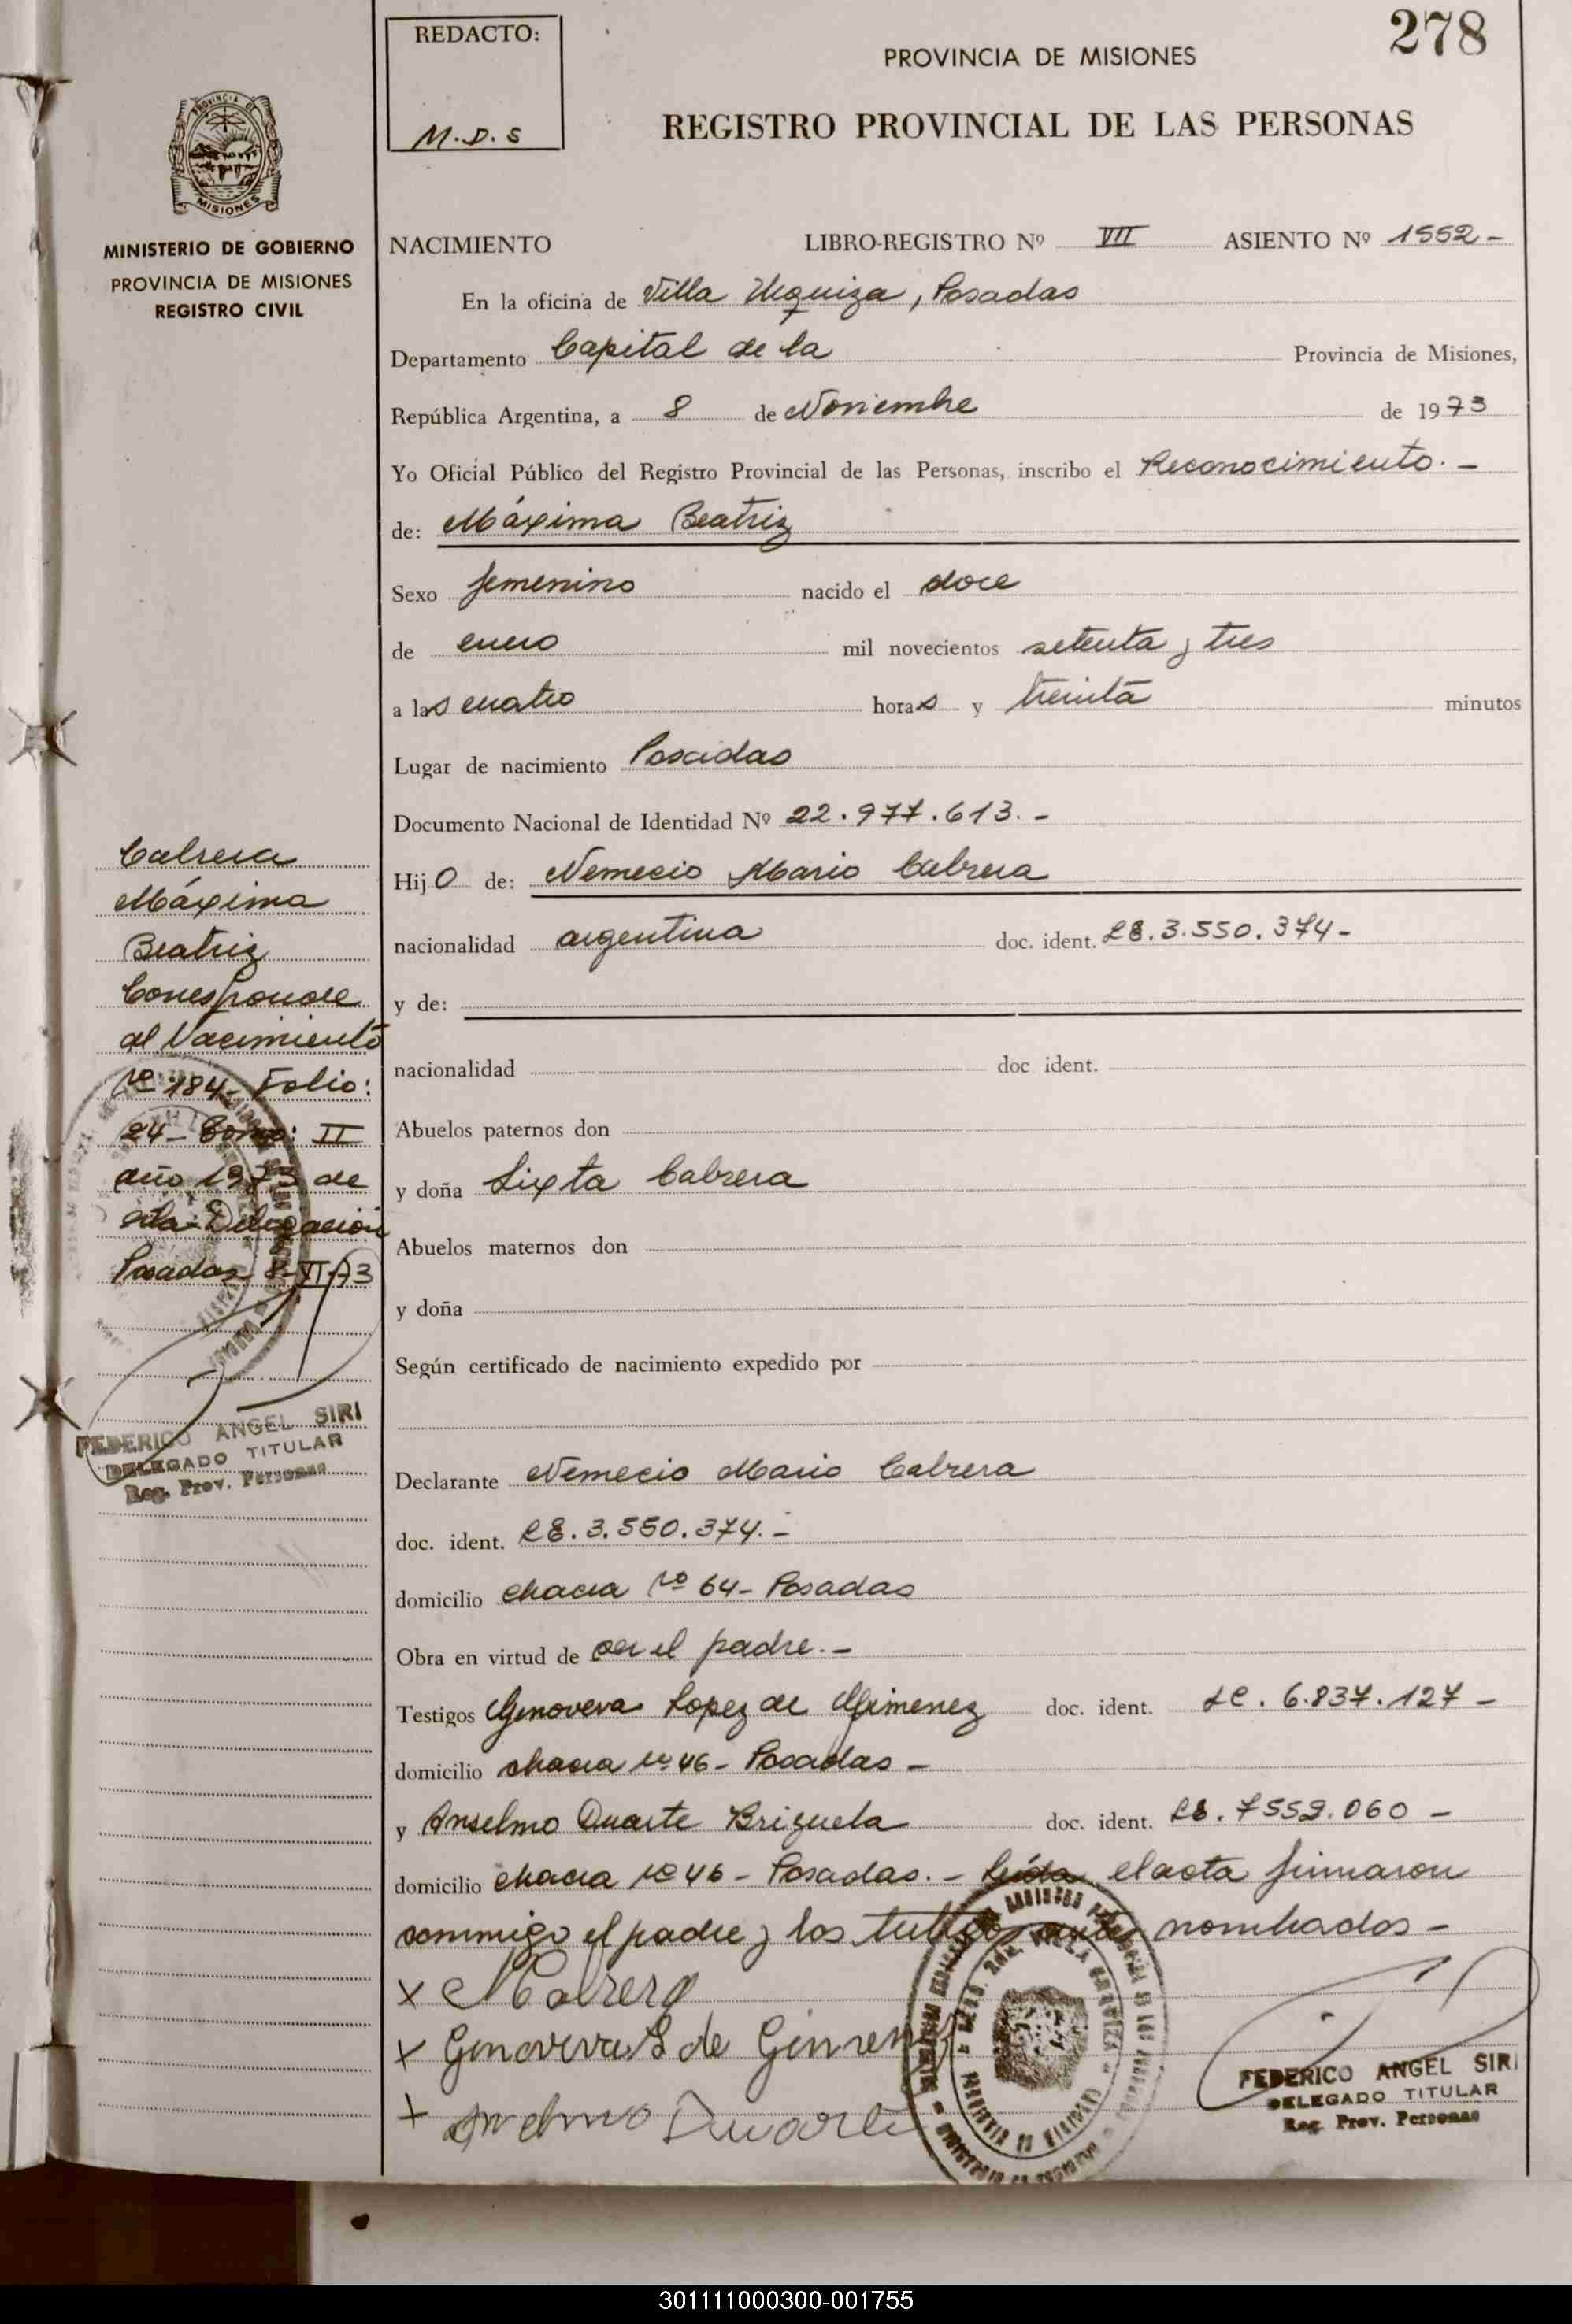 278
REDACTO:
M.D.S
PROVINCIA DE MISIONES
REGISTRO PROVINCIAL DE LAS PERSONAS
MISIONES
MINISTERIO DE GOBIERNO
PROVINCIA DE MISIONES
REGISTRO CIVIL
NACIMIENTO LIBRO-REGISTRO Nº VII ASIENTO Nº 1552-
En la oficina de Villa Urquiza, Posadas
Departamento Capital de la Provincia de Misiones,
República Argentina, a 8 de Noviembre de 1973
Yo Oficial Público del Registro Provincial de las Personas, inscribo el Reconocimiento.-
de: Máxima Beatriz
Sexo femenino nacido el doce
de enero mil novecientos setenta y tres
a las cuatro horas y treinta minutos
Lugar de nacimiento Posadas
Documento Nacional de Identidad Nº 22.977.613.-
Hijo de: Nemecio Mario Cabrera
nacionalidad argentina doc. ident. LE.3.550.374-
y de:
nacionalidad doc ident.
Abuelos paternos don
y doña Sixta Cabrera
Abuelos maternos don
y doña
Según certificado de nacimiento expedido por
Declarante Nemecio Mario Cabrera
doc. ident. LE.3.550.374.-
domicilio chacra Nº 64- Posadas
Obra en virtud de ser el padre.-
Testigos Genoveva Lopez de Gimenez doc. ident. LC. 6.837.127-
domicilio chacra Nº 46- Posadas-
y Anselmo Duarte Brizuela doc. ident. LE. 7559.060-
domicilio chacra Nº 46- Posadas.- Leída el acta firmaron
conmigo el padre y los testigos antes nombrados-
x NCabrera
x Genoveva L de Gimenez
x Anselmo Duarte
FEDERICO ANGEL SIRI
DELEGADO TITULAR
Reg. Prov. Personas
Cabrera
Máxima
Beatriz
Corresponde
al Nacimiento
Nº 184- Folio:
24- Tomo: II
año 1973 de
esta Delegación
Posadas 8-XI-73
FEDERICO ANGEL SIRI
DELEGADO TITULAR
Reg. Prov. Personas
301111000300-001755